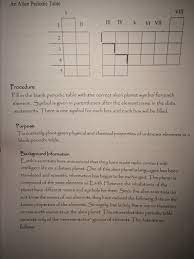 An Alien Periodic Table
I II III IV V VI VII VIII
1
2
3
4
5
Procedure
Fill in the blank periodic table with the correct alien planet symbol for each
element. Symbol is given in parentheses after the element name in the data
statements. There is one symbol for each box and each box will be filled.
Purpose
To correctly place given physical and chemical properties of unknown elements in a
blank periodic table.
Background Information
Earth's scientists have announced that they have made radio contact with
intelligent life on a distant planet. One of this alien planet's languages has been
translated and scientific information has begun to be exchanged. The planet is
composed of the same elements as Earth. However the inhabitants of the
planet have different names and symbols for them. Since the alien scientists do
not know the names of our elements, they have radioed the following data on the
known properties of the elements. Strangely but luckily, there are no
on the alien planet. This means that their periodic
table consists only of the "representative" groups of elements. The data are as
follows: